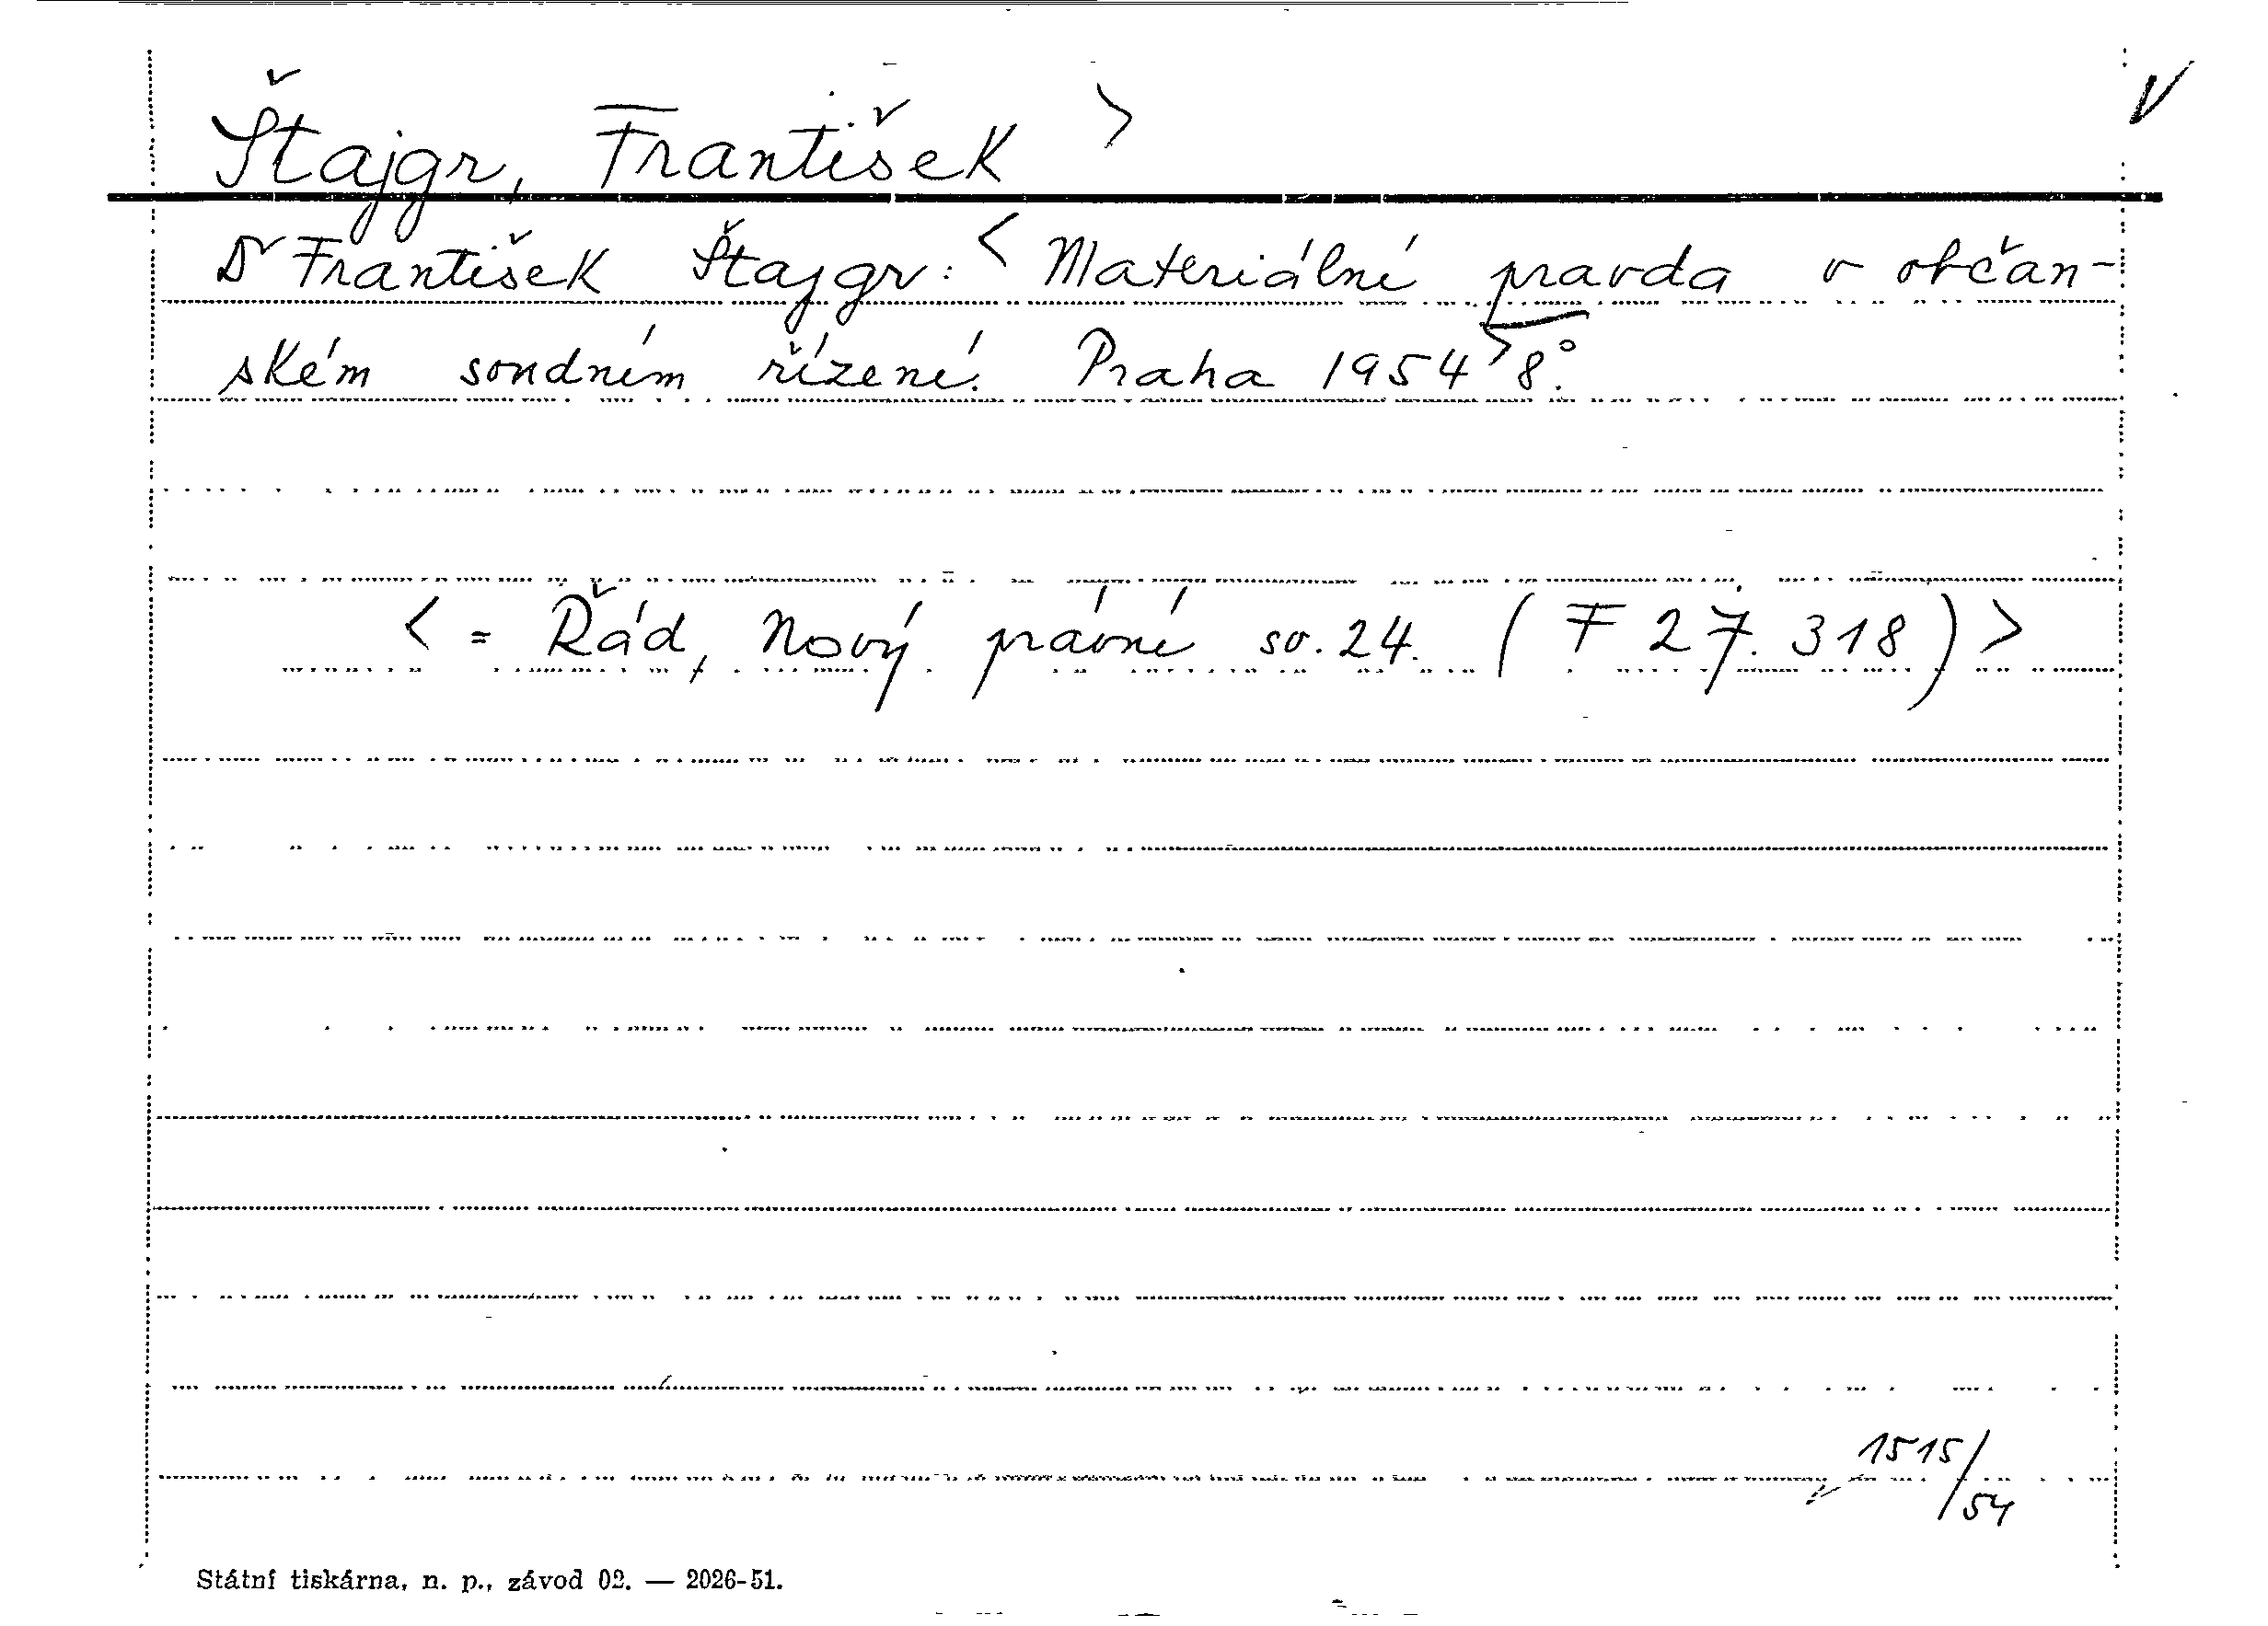 Štajgr, František >
Dr František Štajgr: < Materiální pravda v občan-
ském soudním řízení. Praha 1954 > 8°.
< = Řád, Nový právní sv. 24. (F 27.318) >
1515/54
Státní tiskárna, n. p., závod 02. — 2026-51.